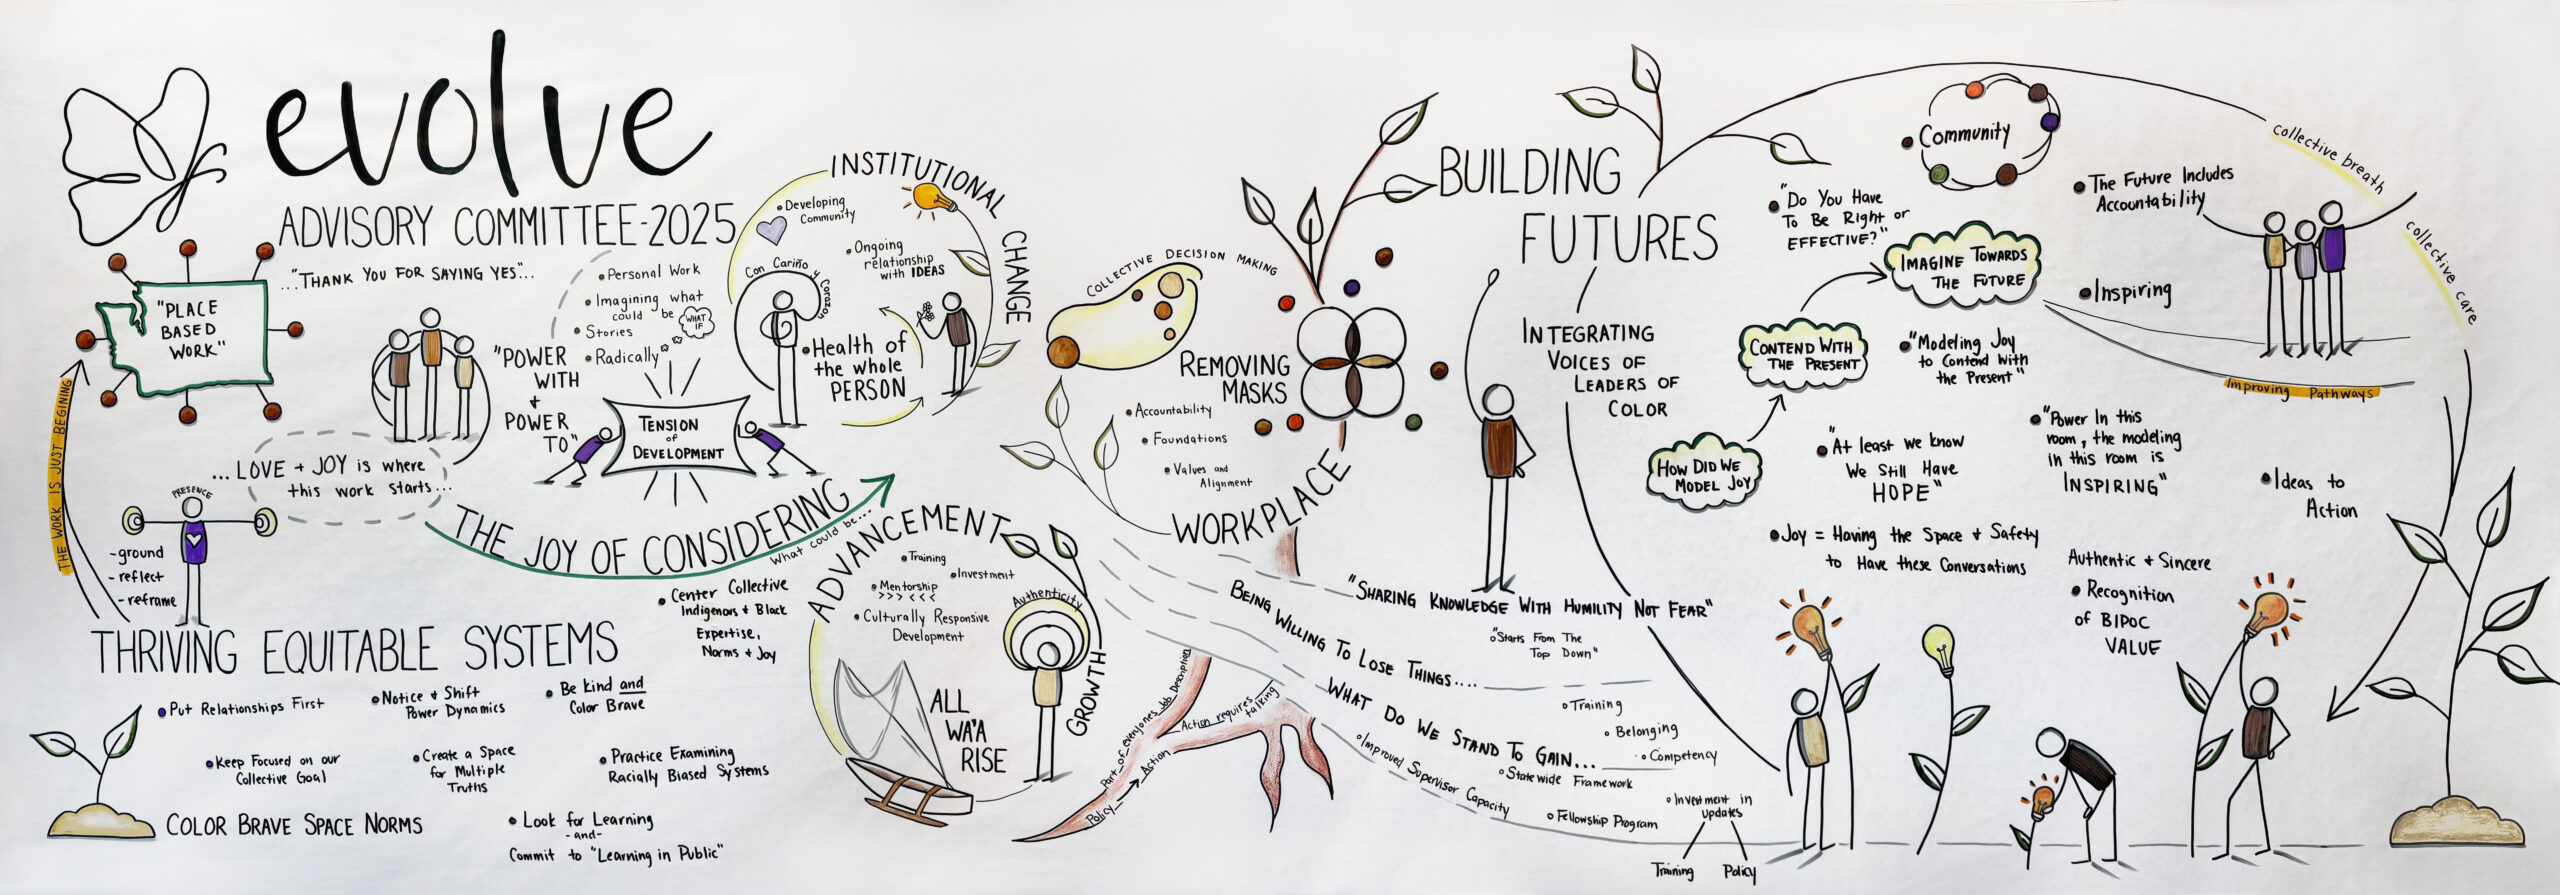 evolve
ADVISORY COMMITTEE-2025
"PLACE
BASED
WORK"
THE WORK IS JUST BEGINING
..."THANK YOU FOR SAYING YES"...
"POWER
WITH
+
POWER
TO"
• Personal Work
• Imagining what
could be
WHAT
IF
• Stories
• Radically
TENSION
of
DEVELOPMENT
...LOVE + JOY is where
this work starts...
PRESENCE
-ground
-reflect
-reframe
THE JOY OF CONSIDERING
What could be...
• Center Collective
Indigenous + Black
Expertise,
Norms + Joy
THRIVING EQUITABLE SYSTEMS
• Put Relationships First
• Notice + Shift
Power Dynamics
• Be kind and
Color Brave
• Keep Focused on our
Collective Goal
• Create a Space
for Multiple
Truths
• Practice Examining
Racially Biased Systems
COLOR BRAVE SPACE NORMS
• Look for Learning
-and-
Commit to "Learning in Public"
INSTITUTIONAL
CHANGE
• Developing
Community
• Ongoing
relationship
with IDEAS
Con Cariño y Corazon
• Health of
the whole
PERSON
ADVANCEMENT
• Training
• Investment
• Mentorship
>>> <<<
• Culturally Responsive
Development
Authenticity
GROWTH
ALL
WA'A
RISE
COLLECTIVE DECISION MAKING
REMOVING
MASKS
• Accountability
• Foundations
• Values and
Alignment
WORKPLACE
Part of everyones Job Description
Action requires
talking
Policy → Action
BUILDING
FUTURES
INTEGRATING
VOICES OF
LEADERS OF
COLOR
"SHARING KNOWLEDGE WITH HUMILITY NOT FEAR"
"Starts From The
Top Down"
BEING WILLING TO LOSE THINGS....
WHAT DO WE STAND TO GAIN...
Training
Belonging
Competency
Improved Supervisor Capacity
Statewide Framework
Fellowship Program
Investment in
updates
Training Policy
• Community
• "Do You Have
To Be Right or
EFFECTIVE?"
IMAGINE TOWARDS
THE FUTURE
CONTEND WITH
THE PRESENT
HOW DID WE
MODEL JOY
• "Modeling Joy
to Contend With
the Present"
• The Future Includes
Accountability
• Inspiring
collective breath
collective care
Improving Pathways
• "At least we know
We Still Have
HOPE"
• "Power In this
room, the modeling
in this room is
INSPIRING"
• Joy = Having the Space + Safety
to Have these Conversations
• Ideas to
Action
Authentic + Sincere
• Recognition
of BIPOC
VALUE